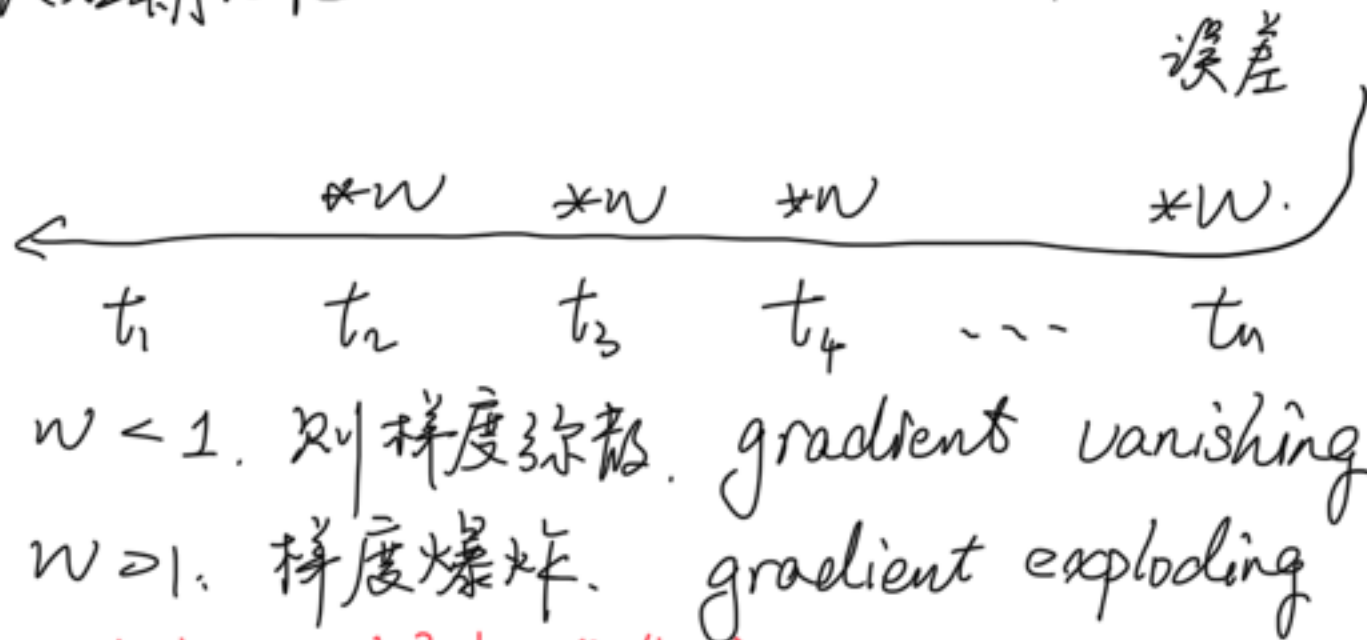 误差
*W *W *W *W.
t₁ t₂ t₃ t₄ ... tₙ
W < 1. 则样度弥散. gradient vanishing
W > 1. 样度爆炸. gradient exploding